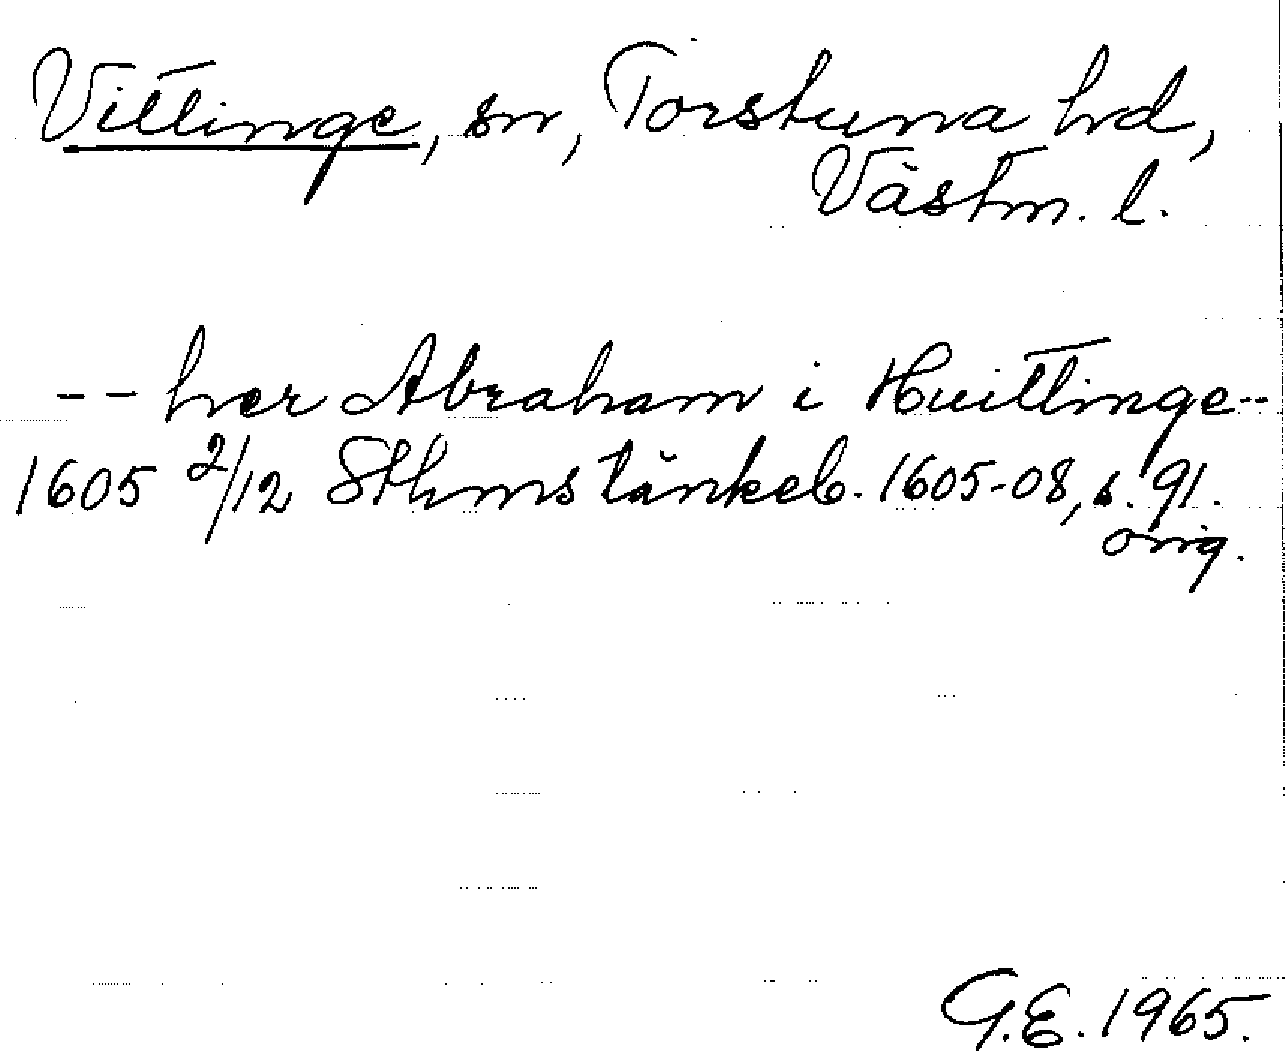 Vittinge, sn, Torstuna hd,
Västm. l.
-- her Abraham i Huittinge--
1605 2/12 Sthms tänkeb. 1605-08, s. 91.
orig.
G.E. 1965.